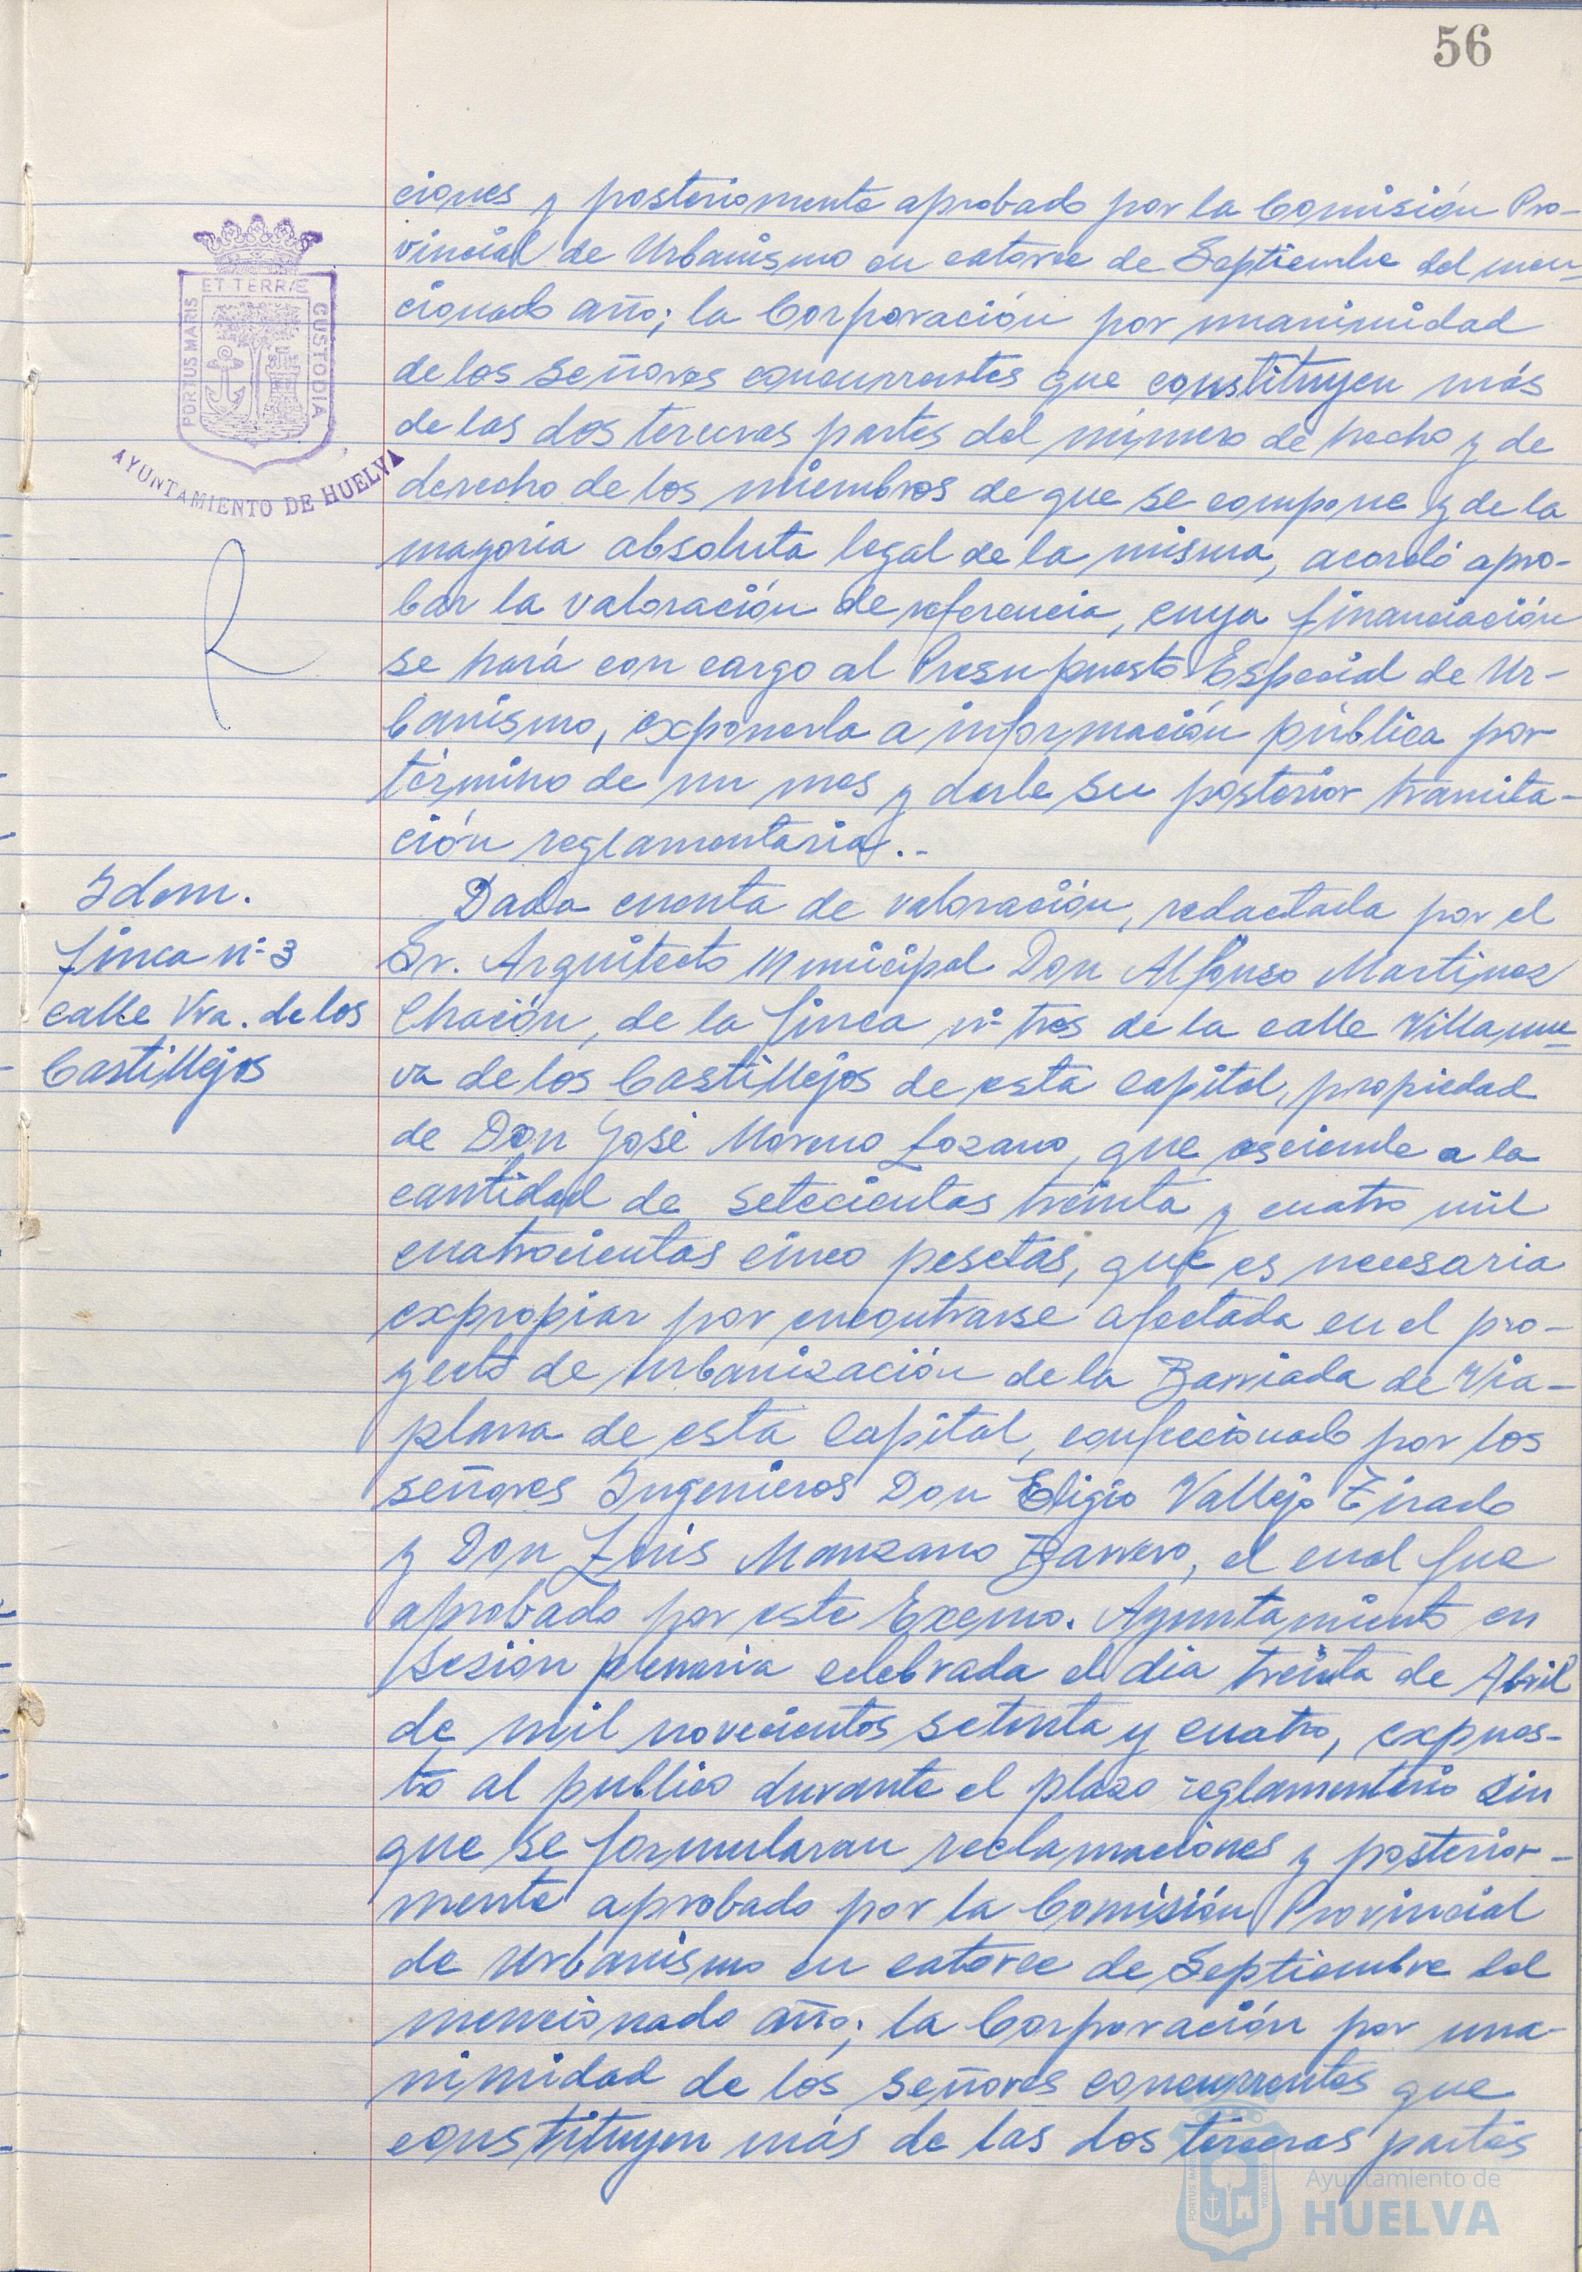 56
ciones y posteriormente aprobado por la Comisión Pro-
vincial de Urbanismo en catorce de Septiembre del men-
cionado año; la Corporación por unanimidad
de los señores concurrentes que constituyen más
de las dos terceras partes del número de hecho y de
derecho de los miembros de que se compone y de la
mayoría absoluta legal de la misma, acordó apro-
bar la valoración de referencia, cuya financiación
se hará con cargo al Presupuesto Especial de Ur-
banismo, exponerla a información pública por
término de un mes y darle su posterior tramita-
ción reglamentaria.-
PORTUS MARIS ET TERRÆ CUSTODIA
AYUNTAMIENTO DE HUELVA
Idem.
finca nº 3
calle Vva. de los
Castillejos
Dada cuenta de valoración, redactada por el
Sr. Arquitecto Municipal Don Alfonso Martinez
Chacón, de la finca nº tres de la calle Villanue-
va de los Castillejos de esta capital, propiedad
de Don José Moreno Lozano, que asciende a la
cantidad de setecientas treinta y cuatro mil
cuatrocientas cinco pesetas, que es necesaria
expropiar por encontrarse afectada en el pro-
yecto de urbanización de la Barriada de Via-
plana de esta Capital, confeccionado por los
señores Ingenieros Don Eligio Vallejo Tirado
y Don Luis Manzano Barrero, el cual fue
aprobado por este Excmo. Ayuntamiento en
sesión plenaria celebrada el dia treinta de Abril
de mil novecientos setenta y cuatro, expues-
to al publico durante el plazo reglamentario sin
que se formularan reclamaciones y posterior-
mente aprobado por la Comisión Provincial
de Urbanismo en catorce de Septiembre del
mencionado año; la Corporación por una-
nimidad de los señores concurrentes que
constituyen más de las dos terceras partes
Ayuntamiento de
HUELVA